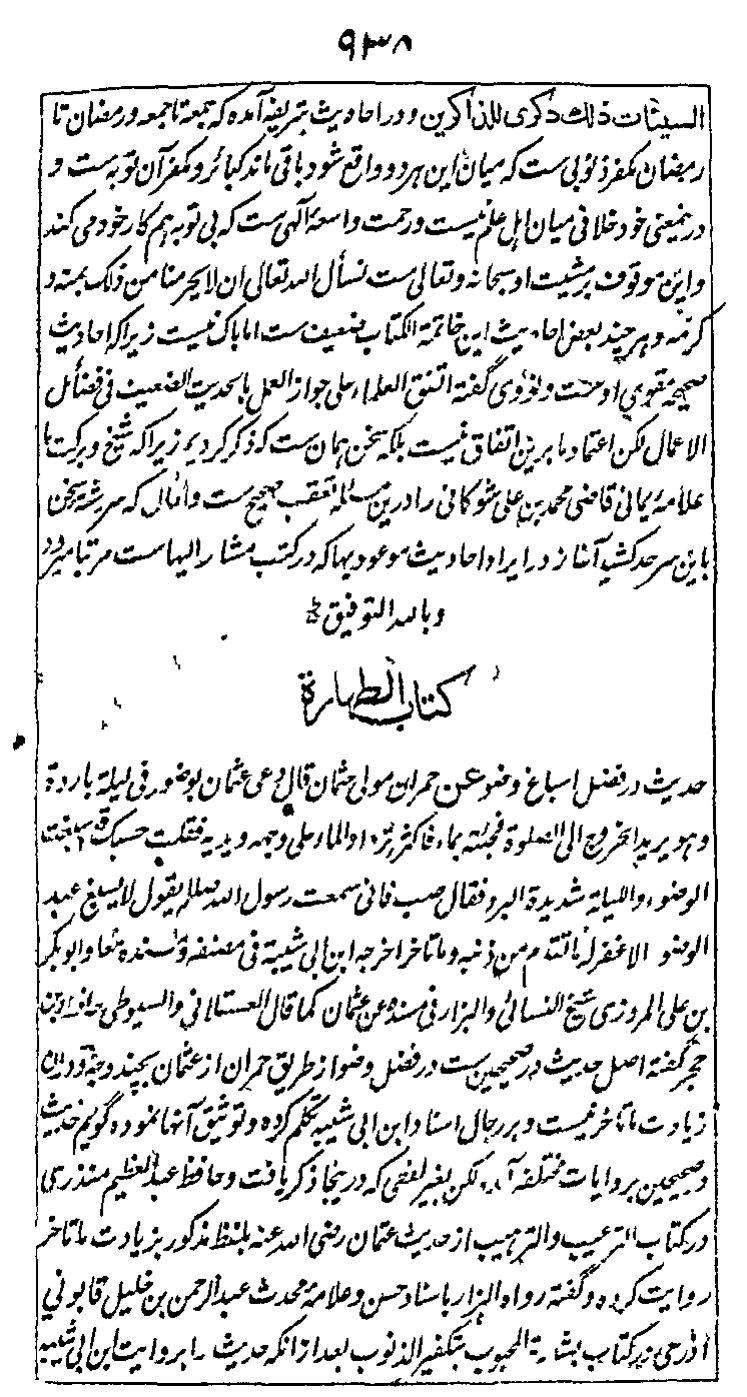 ۹۳۸
السیئات ذلک ذکری للذاکرین و در احادیث شریفه آمده که جمعه تا جمعه و رمضان تا
رمضان مکفر ذنوبی ست که میان این هر دو واقع شود باقی ماند کبائر و مکفر آن توبه ست و
درینمعنی خود خلافی میان اهل علم نیست و رحمت واسعهٔ الهی ست که بی توبه هم کار خود می کند
و این موقوف بر مشیت او سبحانه و تعالی ست نسأل الله تعالی ان لا یحرمنا من ذلک بمنه و
کرمه و هر چند بعض احادیث این خاتمة الکتاب ضعیف ست اما باک نیست زیرا که احادیث
صحیحه مقوی اوست و نووی گفته اتفق العلماء علی جواز العمل بالحدیث الضعیف فی فضائل
الاعمال لکن اعتماد ما برین اتفاق نیست بلکه سخن همان ست که ذکر کردیم زیرا که شیخ و برکت ما
علامهٔ یمانی قاضی محمد بن علی شوکانی را درین مسئله تعقب صحیح ست و الحال که سر رشتهٔ سخن
باین سر حد کشید آغاز در ایراد احادیث موعود بها که در کتب مشار الیها ست مرتبا میرود
و بالله التوفیق
کتاب الطهارة
حدیث در فضل اسباغ وضو عن حمران مولی عثمان قال دعی عثمان بوضوء فی لیلة باردة
و هو یرید الخروج الی الصلوة فجئته بماء فاکثر ترداد الماء علی وجهه و یدیه فقلت حسبک قد اسبغت
الوضوء و اللیلة شدیدة البرد فقال صب فانی سمعت رسول الله صلعم یقول لا یسبغ عبد
الوضوء الا غفر له ما تقدم من ذنبه و ما تأخر اخرجه ابن ابی شیبة فی مصنفه و مسنده معا و ابو بکر
بن علی المروزی شیخ النسائی و البزار فی مسنده عن عثمان کما قال العسقلانی و السیوطی حافظ ابن
حجر گفته اصل حدیث در صحیحین ست در فضل وضو از طریق حمران از عثمان بچند وجه و در ان
زیادت ما تأخر نیست و بر رجال اسناد ابن ابی شیبه تکلم کرده و توثیق آنها نموده گویم حدیث
در صحیحین بروایات مختلفه آمده لکن بغیر لفظی که درینجا ذکر یافت و حافظ عبد العظیم منذری
در کتاب الترغیب و الترهیب از حدیث عثمان رضی الله عنه بلفظ مذکور بزیادت ما تأخر
روایت کرده و گفته رواه البزار باسناد حسن و علامهٔ محدث عبد الرحمن بن خلیل قابونی
اذرعی در کتاب بشارة المحبوب بتکفیر الذنوب بعد از انکه حدیث را بروایت ابن ابی شیبه